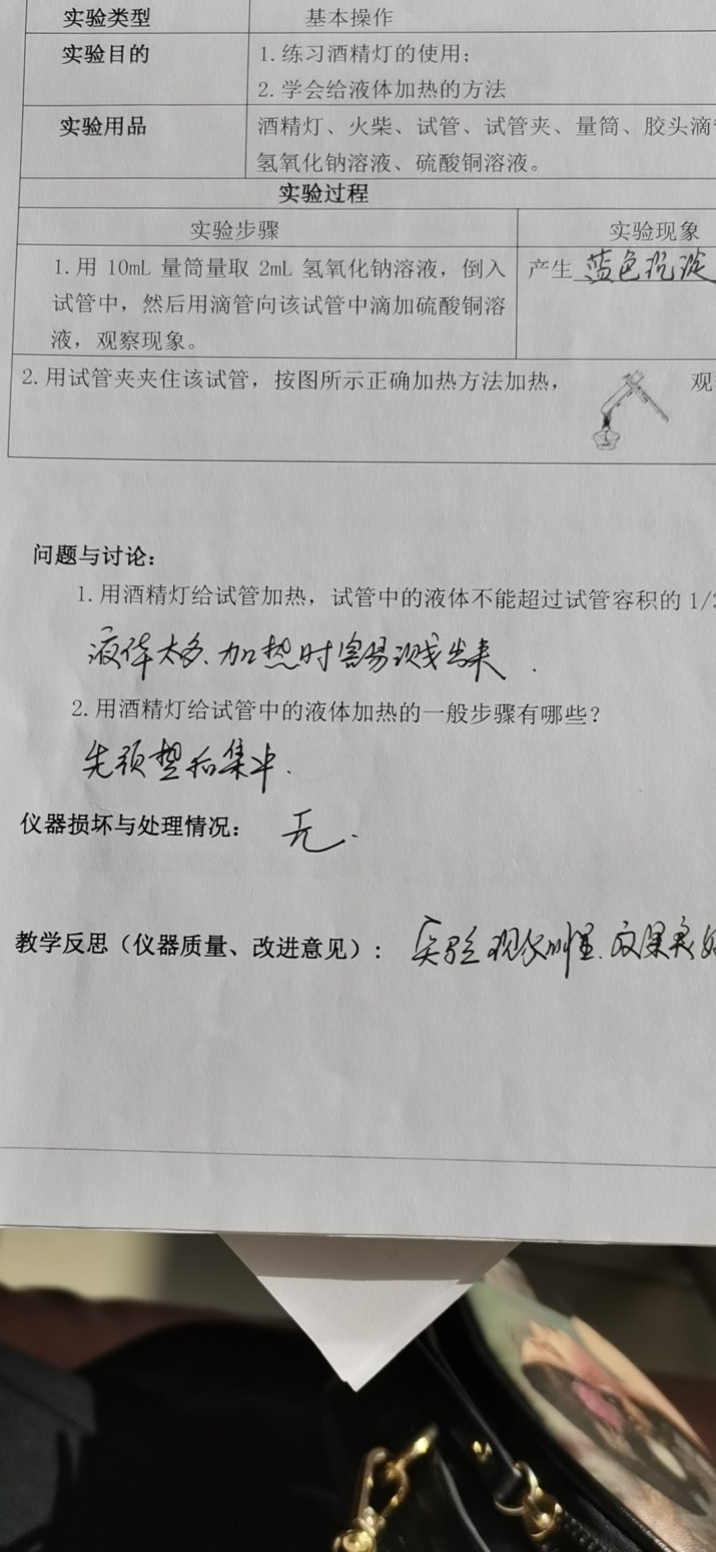 实验类型 基本操作
实验目的 1.练习酒精灯的使用;
2.学会给液体加热的方法
实验用品 酒精灯、火柴、试管、试管夹、量筒、胶头滴
氢氧化钠溶液、硫酸铜溶液。
实验过程
实验步骤 实验现象
1.用 10mL 量筒量取 2mL 氢氧化钠溶液，倒入 产生 蓝色沉淀
试管中，然后用滴管向该试管中滴加硫酸铜溶
液，观察现象。
2.用试管夹夹住该试管，按图所示正确加热方法加热， 观
问题与讨论：
1.用酒精灯给试管加热，试管中的液体不能超过试管容积的 1/
液体太多、加热时容易溅出来.
2.用酒精灯给试管中的液体加热的一般步骤有哪些？
先预热后集中.
仪器损坏与处理情况： 无.
教学反思（仪器质量、改进意见）： 实验现象明显.效果良好